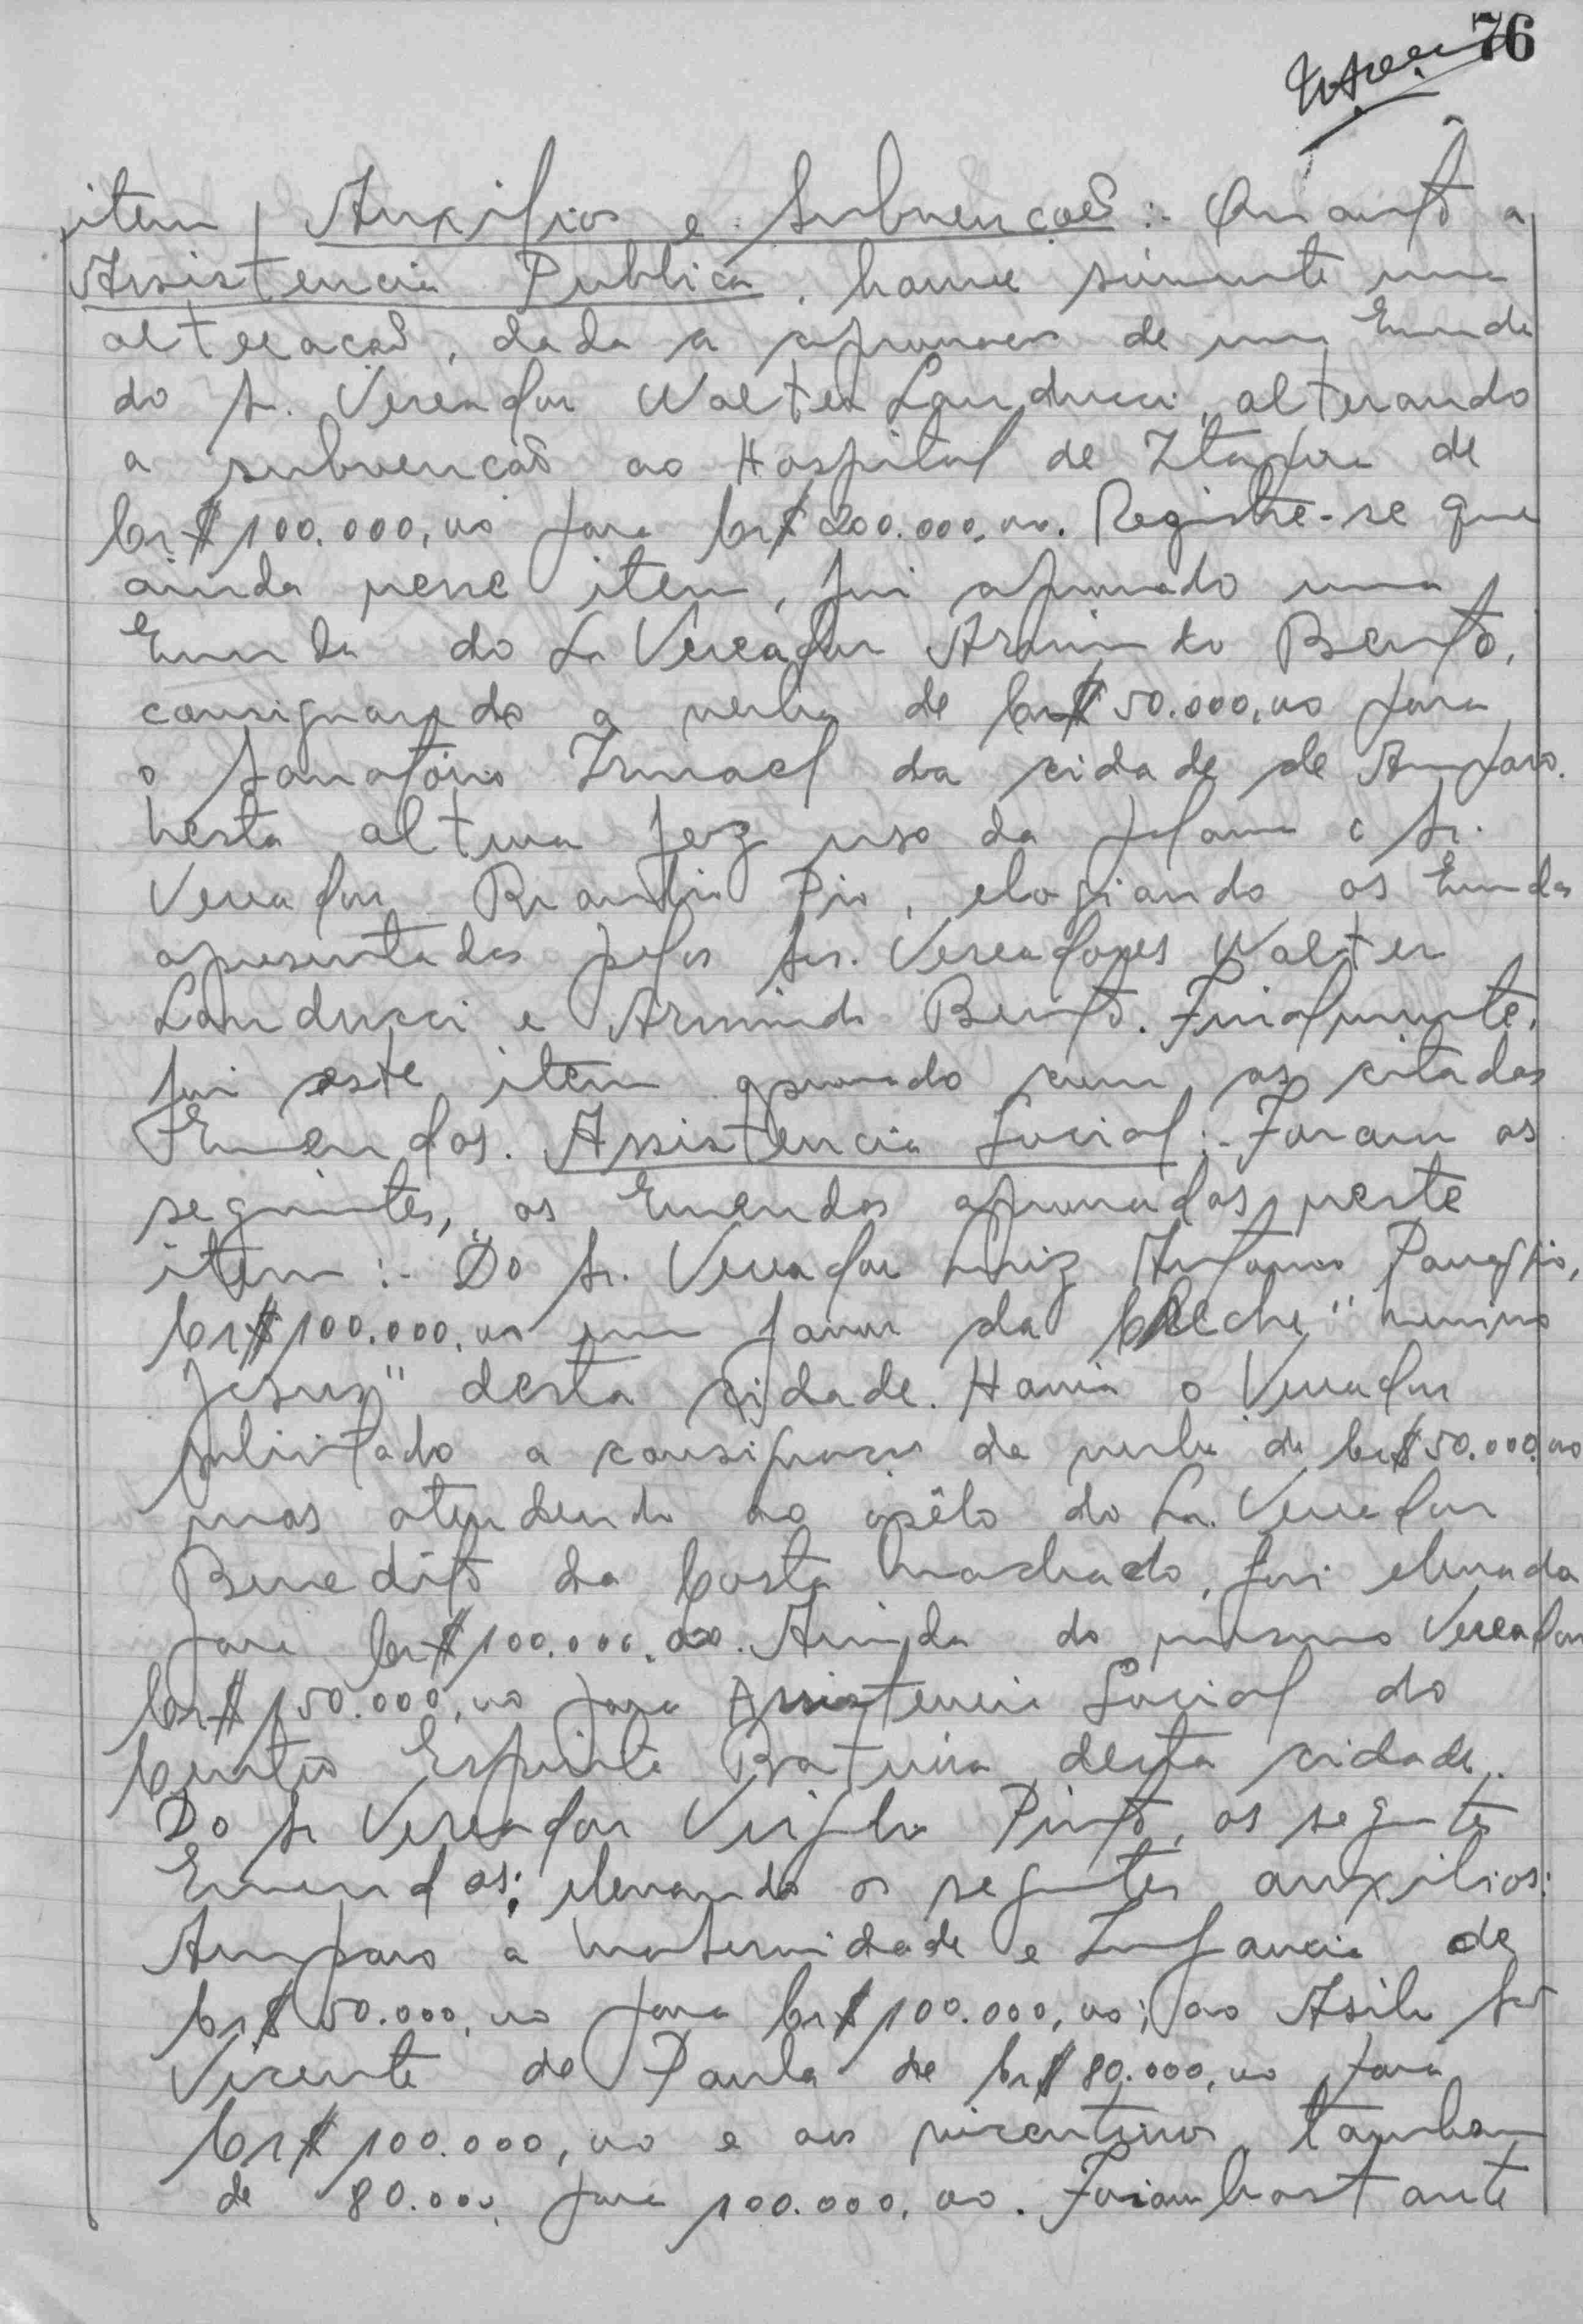 76
item, Auxilios e Subvenções :- Quanto a
Assistencia Publica, houve sómente uma
alteração, dada a aprovação de uma Emenda
do Sr. Vereador Walter Landucci, alterando
a subvenção ao Hospital de Itapira de
Cr$ 100.000,00 para Cr$ 200.000,00. Registre-se que
ainda nesse item, foi aprovado uma
Emenda do Sr Vereador Armindo Bento,
consignando a verba de Cr$ 50.000,00 para
o Sanatório Ismael da cidade de Amparo.
Nesta altura fez uso da palavra o Sr.
Vereador Pio, elogiando as Emendas
apresentadas pelos Srs. Vereadores Walter
Landucci e Armindo Bento. Finalmente,
foi este item aprovado com as citadas
Emendas. Assistencia Social :- Foram as
seguintes, as Emendas aprovadas neste
item :- Do Sr. Vereador Luiz Antonio
Cr$ 100.000,00 em favor da Creche "Menino
Jesus" desta cidade. Havia o Vereador
solicitado a consignação da verba de Cr$ 50.000,00
mas atendendo ao apêlo do Sr. Vereador
Benedito da Costa Machado, foi elevada
para Cr$ 100.000,00. Ainda do mesmo Vereador
Cr$ 150.000,00 para Assistencia Social do
Centro Espirita Batuira desta cidade.
Do Sr Vereador Virgilio Pinto, as seguintes
Emendas; elevando os seguintes auxilios:
Amparo a Maternidade e Infancia de
Cr$ 50.000,00 para Cr$ 100.000,00; ao Asilo São
Vicente de Paula de Cr$ 80.000,00 para
Cr$ 100.000,00 e aos vicentinos tambem
de 80.000, para 100.000,00. Foram bastante